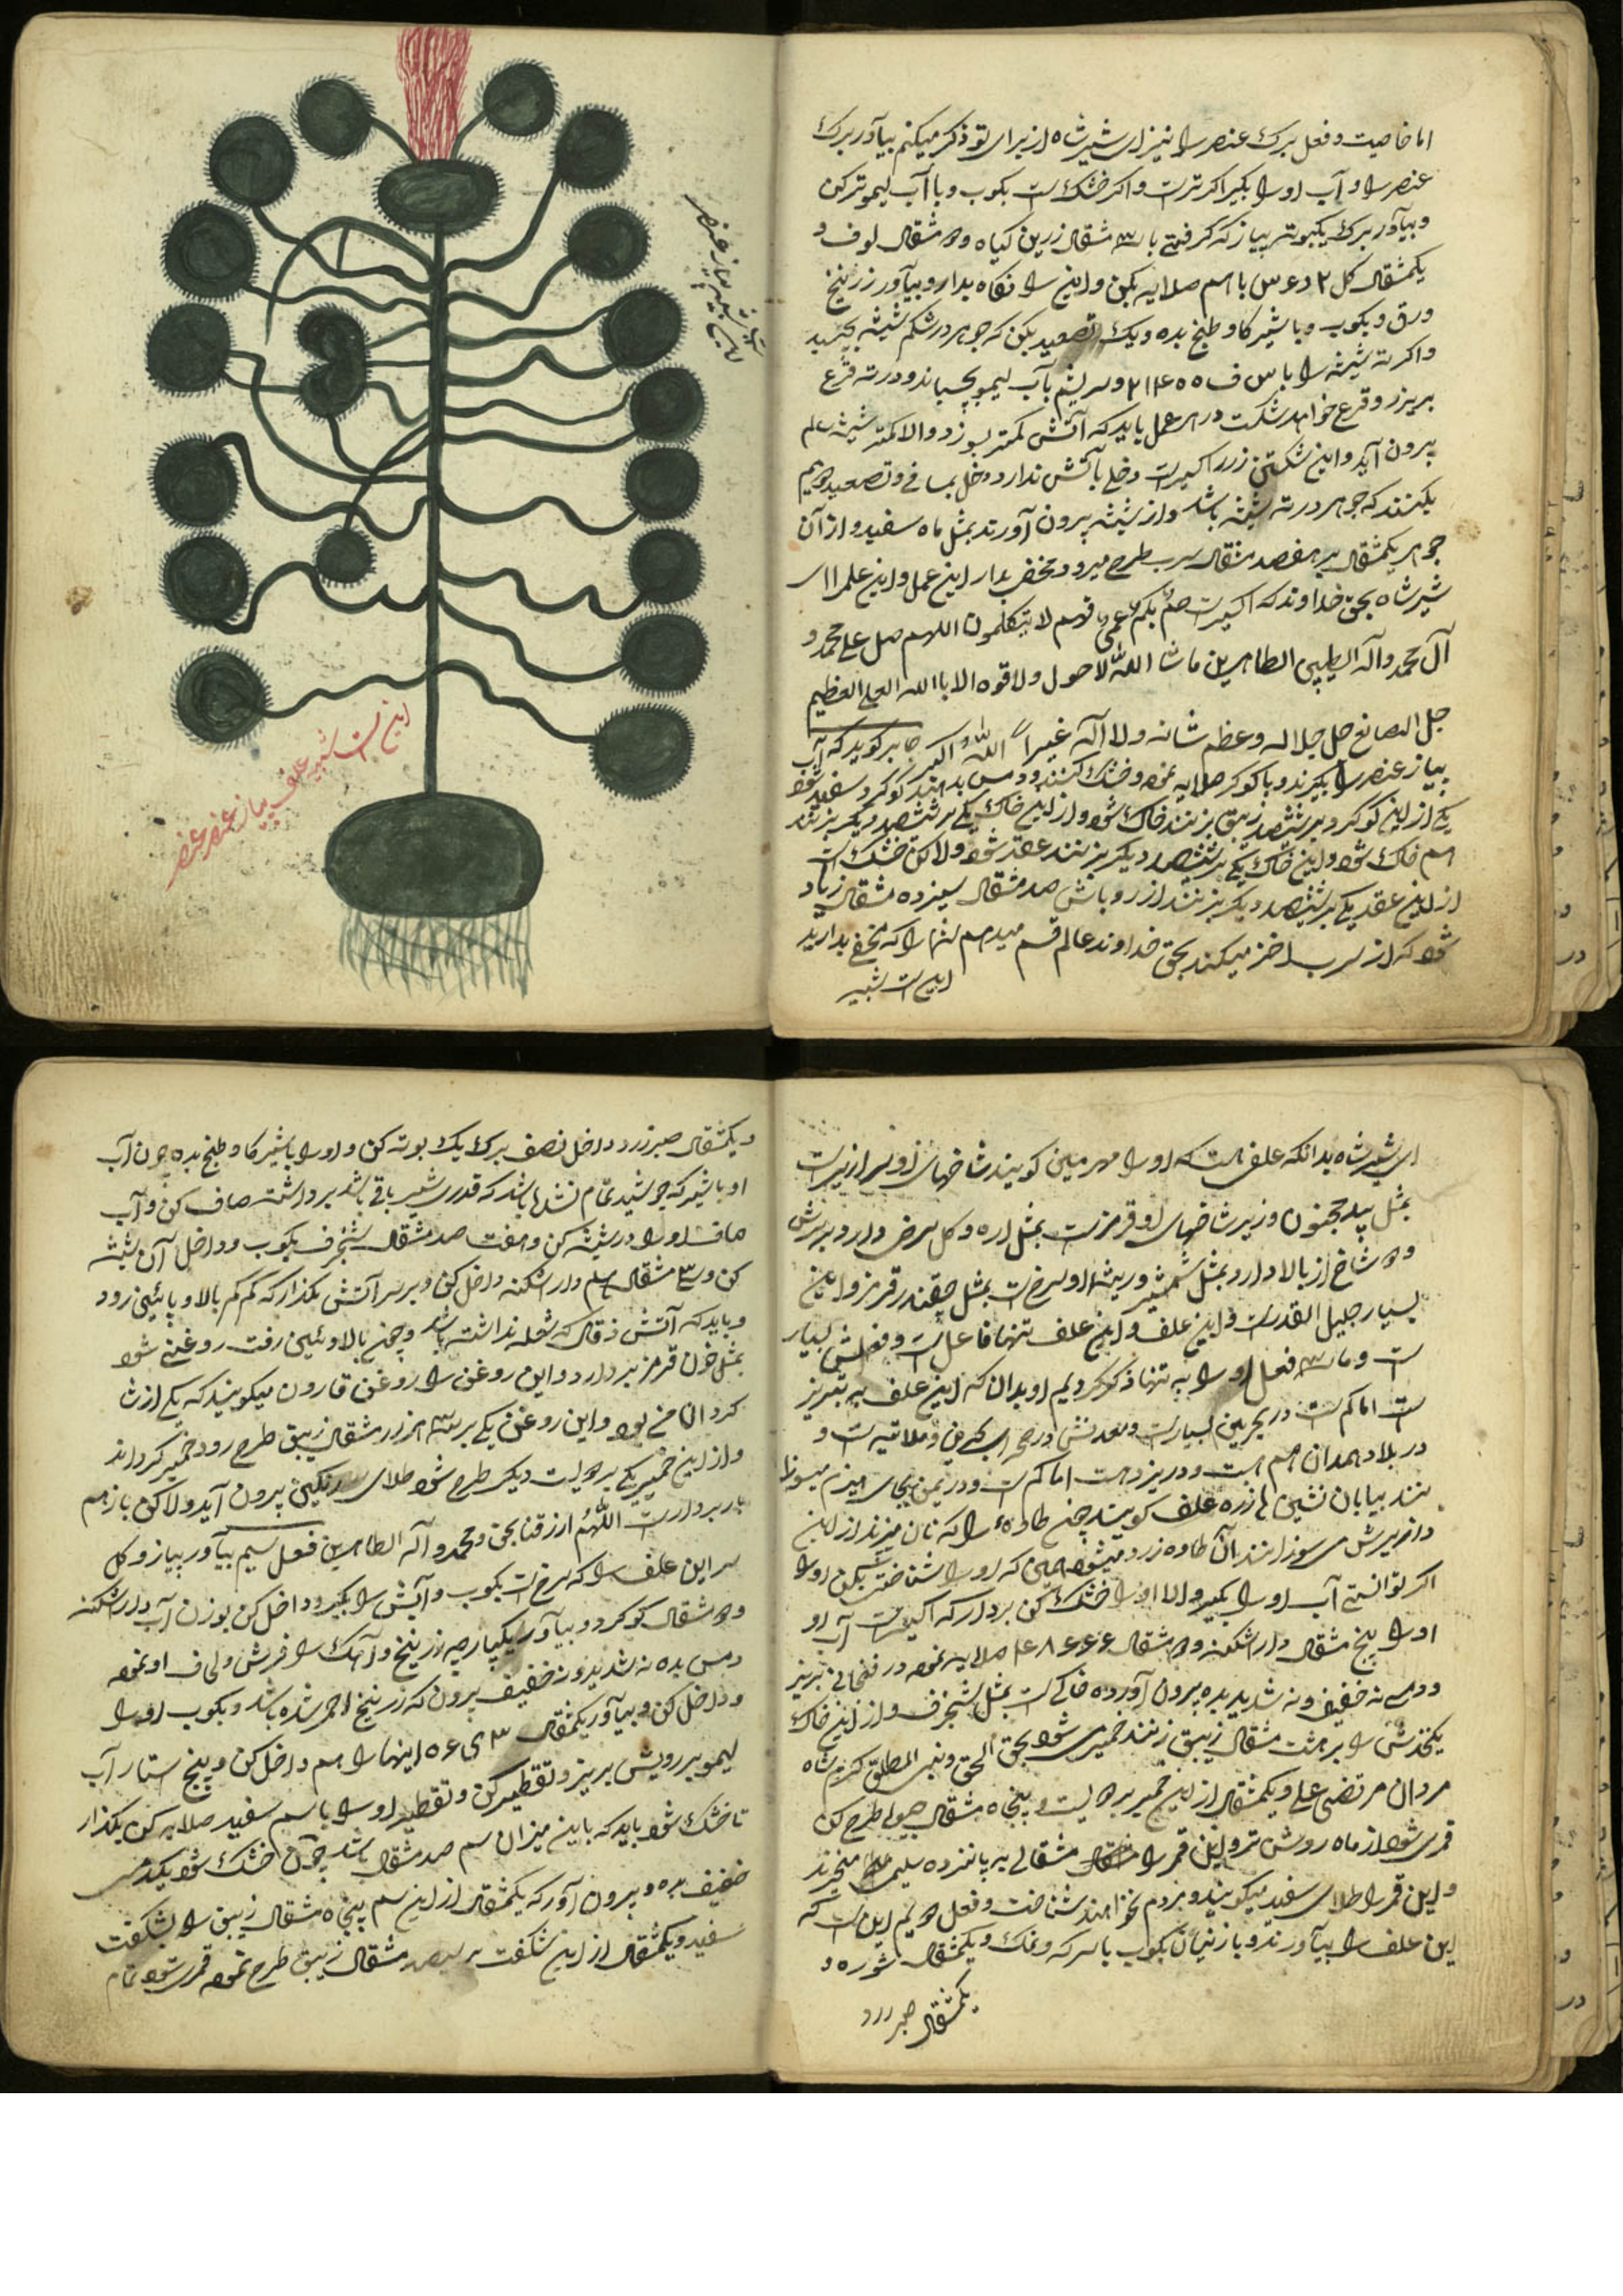 اما خاصیت و فعل برک عنصر را نیز ای شیرشاه از برای تو ذکر میکنم بیاور برک
عنصر را و آب او را بکیر اکر تر است و اکر خشک است بکوب و با آب لیمو تر کن
و بیاور برک یکبوته پیاز که کرفتی با مثقال زرین کیاه و مثقال لوف و
یکمثقال کل با هم صلایه بکن و این را نکاه بدار و بیاور زرنیخ
ورق و بکوب و با شیر کاو طبخ بده و یک تصعید بکن که جوهر در شکم شیشه بچسبد
و اکر ته شیشه را با و سریشم با آب لیمو بچسباند و در ته قرع
بریزد و قرع خواهد شکست در هر عمل باید که آتش کمتر بسوزد و الا کمتر شیشه سالم
بیرون آید و این شکستن زرر اکسیر است دخلی بآتش ندارد و تصعید
بکنند که جوهر در ته شیشه باشد و از شیشه بیرون آورند بمثل ماه سفید و از آن
جوهر یکمثقال بر هفصد مثقال سرب طرح میرود مخفی بدار این عمل و این علم را ای
شیرشاه بحق خداوند که اکسیر است صم بکم عمی فهم لا یتکلمون اللهم صل علی محمد و
آل محمد و آله الطیبین الطاهرین ما شا الله لا حول و لا قوه الا بالله العلی العظیم
جل الصانع جل جلاله و عظم شانه و لا اله غیرا الله و اکبر جابر کوید که آب
پیاز عنصر را بکیرند و با کوکرد صلایه نموه و خشک کنند و دمس بدهند کوکرد سفید شود
یکی از این کوکرد بر ششصد زیبق بزنند خاک شود و از این خاک یکی بر ششصد دیکر بزنند
هم خاک شود و این خاک یکی بر ششصد دیکر بزنند عقد شود و لاکن خشک است
از این عقد یکی بر ششصد دیکر بزنند از روباش صد مثقال سیزده مثقال زیاد
شود که از سرب اخز میکند بحق خداوند عالم قسم میدهم شما را که مخفی بدارید
این است شبیه
این است شبیه علف پیاز عنصر عنصر
ای شیرشاه بدانکه علفی هست که او را مهرمین کویند شاخهای او سرازیر است
بمثل بید مجنون و زیر شاخهای او قرمز است بمثل اره و کل سرخ دارد و برسرش
شاخ از بالا دارد بمثل شمشیر و ریشه او سرخ است بمثل چقندر قرمز و این
بسیار جلیل القدر است این علف و این علف تنها فاعل است و فعلش بسیار
است و ما فعل او را به تنها ذکر کردیم او بدان که این علف به تبریز
است اما کم است در بحرین بسیار است و معدنش در صحرای
در بلاد همدان هم هست و در یزد هست اما کم است و در یمن بجای هیزم میسوزا
نند بیابان نشین ها زره علف کویند چنین طاوه را که نان میزند از این
و از زیرش میسوزانند آن طاوه زرد میشود همین که او را شناختی بکن او را
اکر توانستی آب او را بکیر و الا او را خشک کن بردار که اکسیر است آب او
او را پنج مثقال دار اشکنه و مثقال صلایه نموه در فنجانی بریز
و دمس نه خفیف و نه شدید بده بیرون آورده خاکی است بمثل شنجرف و از این خاک
یکخدش را بر هشت مثقال زیبق زنند خمیر می شود بحق الحق و نبی المطلق کرم شاه
مردان مرتضی علی و یکمثقال از این خمیر بر دویست و پنجاه مثقال هیولی طرح کن
قمری شود از ماه روشن تر و این قمر را مثقالی به پانزده میخرند
و این قمر را طلای سفید میکویند و مردم نخواهند شناخت و فعل دویم این است که
این علف را بیاورند و بازنیان بکوب با سرکه و نمک و یکمثقال شوره و
یکمثقال صبر زرد
و یکمثقال صبر زرد داخل نصف برک یک بوته کن و او را با شیر کاو طبخ بده چون آب
او با شیر که جوشید تمام نشده باشد که قدری شیر باقی باشد برداشته صاف کن و آب
صاف او را در شیشه کن و هفت صد مثقال شنجرف بکوب و داخل آن شیشه
کن و مثقال سم دار اشکنه داخل کن و بر سر آتش بکذار که کم کم بالا و پائین رود
و باید که آتش ذقال که شعله نداشته باشد و چون بالا و پائین رفت روغنی شود
بمثل خون قرمز بردارد و این روغن را روغن قارون میکویند که یکی از ث
کردان می بود و این روغن یکی بر هزار مثقال زیبق طرح رود خمیر کرداند
و از این خمیر یکی بر دویست دیکر طرح شود طلای رنکین بیرون آید و لاکن باز هم
بار بردار است اللهم ارزقنا بحق محمد و آله الطاهرین فعل سیم بیاور پیاز و کل
سر این علف را که سرخ است بکوب و آبش را بکیر و داخل کن بوزن آب دار اشکنه
و مثقال کوکرد و بیاور یکپارچه زرنیخ و آهک را فرش و لحاف او نموه
دمس بده نه شدید و نه خفیف بیرون که زرنیخ احمر شده باشد و بکوب او را
و داخل کن و بیاور یکمثقال اینها را هم داخل کن و پنج ستار آب
لیمو بر رویش بریز و تقطیر کن و تقطیر او را با سم سفید صلایه کن بکذار
تا خشک شود باید که باین میزان سم صد مثقال باشد چون خشک شود یکدمس
خفیف بده و بیرون آور که یکمثقال از این سم پنجاه مثقال زیبق را بشکفت
سفید و یکمثقال از این شکفت بر سیصد مثقال زیبق طرح نموه قمری شود تمام